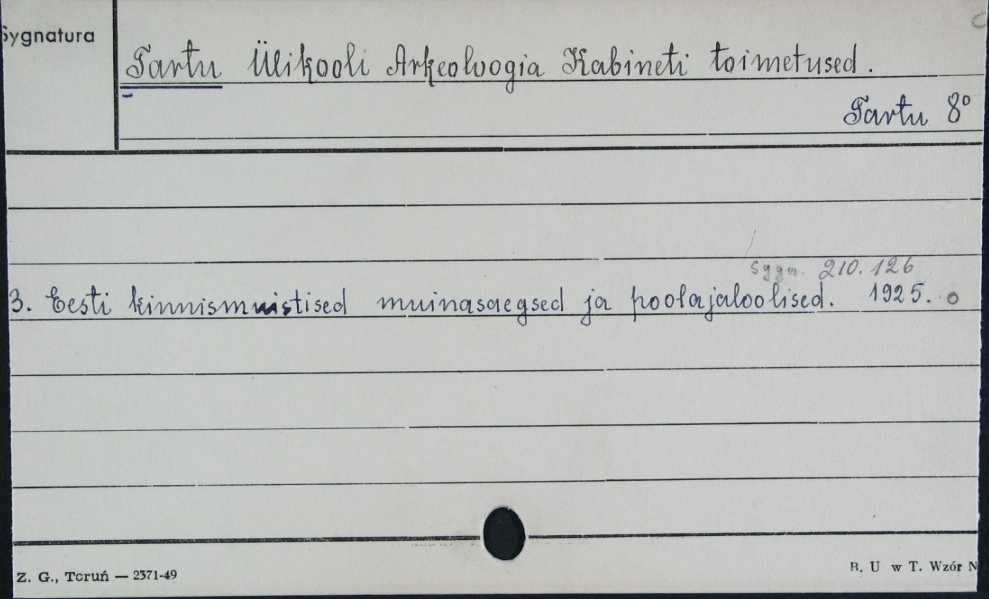 Sygnatura
Tartu Ülikooli Arkeoloogia Kabineti toimetused.
Tartu 8°
Sygn. 210.126
3. Eesti kinnismuistised muinasaegsed ja poolajaloolised. 1925.
Z. G., Toruń — 2371-49
B. U w T. Wzór N